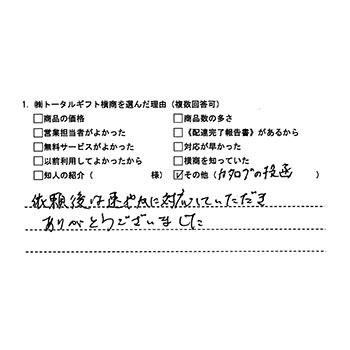 1. ㈱トータルギフト横商を選んだ理由（複数回答可）
□商品の価格 □商品数の多さ
□営業担当者がよかった □《配達完了報告書》があるから
□無料サービスがよかった □対応が早かった
□以前利用してよかったから □横商を知っていた
□知人の紹介（ 様） ☑その他（カタログの投函）
依頼後は速やかに対応していただき
ありがとうございました